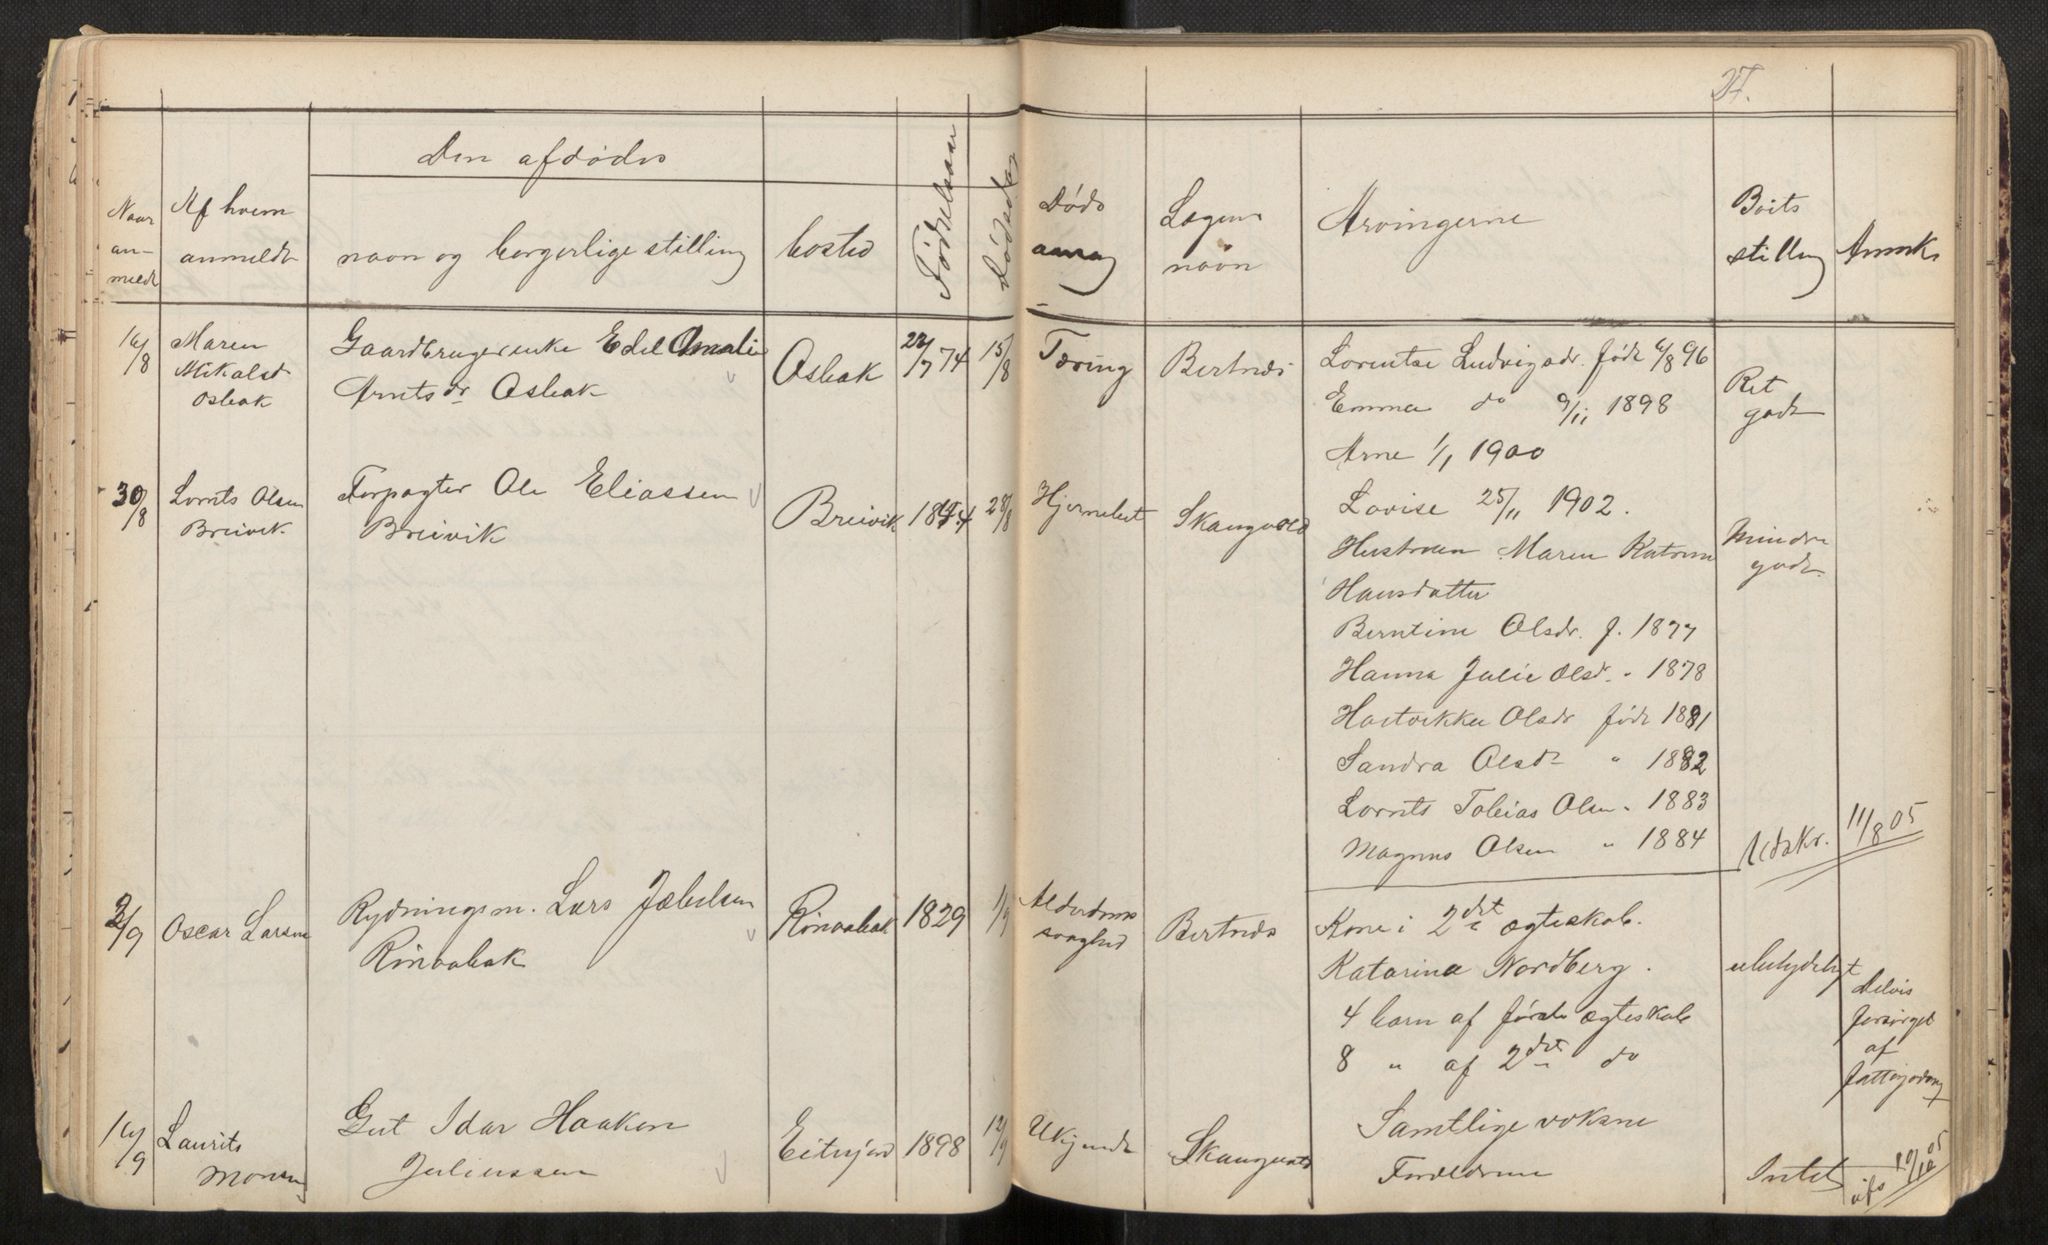 Den afdødes
Naar anmeldt
Af hvem anmeldt
navn og borgerlige stilling
bosted
Fødselsaar
Dødsdag
Døds aarsag
Sogne navn
Arvingerne
Boets stilling
Anmk
16/8
Maren
Mikalsd
Osbak
Gaardbrugerenke Edel Amalie
Arntsdr Osbak
Osbak
22/7 74
15/8
Tæring
Bertnes
Lorentse Ludvigsdr. født 6/8 96
Emma do 9/11 1898
Arne 1/1 1900
Lovise 25/11 1902.
Ret
godt
30/8
Lornts Olsen
Breivik
Forpagter Ole Eliassen
Breivik
Breivik
1844
28/8
Skaugvold
Hustruen Maren Katrine
Hansdatter
Berntine Olsdr. f. 1877
Hanna Julie Olsdr. " 1878
Hartvikke Olsdr født 1881
Sandra Olsdr " 1882
Lornts Tobias Olsen " 1883
Magnus Olsen " 1884
Mindre
godt.
Udskr. 11/8 05
2/9
Oscar Larsen
Rydningsm. Lars Jakobsen
Rönvabak
Rönvabak
1829
1/9
Alderdoms
svaghed
Bertnes
Kone i 2det ægteskab.
Katarina Nordberg.
4 barn af første ægteskab
8 " af 2det do
Samtlige voksne
ubetydeligt
Delvis
forsørget
af
fattigvæsen
16/9
Laurits
Monsen
Gut Idar Haakon
Juliussen
Eitnjord
1898
12/9
Ukjendt
Skaugvold
Forældrene
Intet